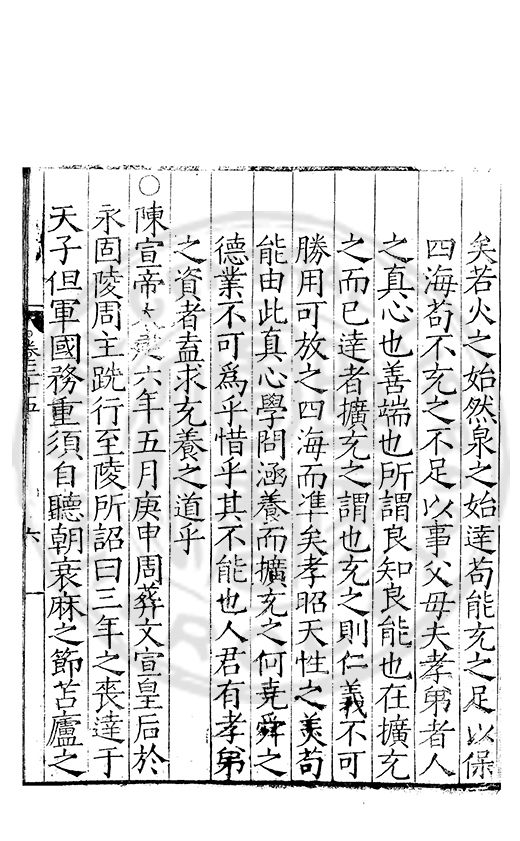 矣若火之始然泉之始達苟能充之足以保
四海苟不充之不足以事父母夫孝弟者人
之真心也善端也所謂良知良能也在擴充
之而已達者擴充之謂也充之則仁義不可
勝用可放之四海而準矣孝昭天性之美苟
能由此真心學問涵養而擴充之何堯舜之
德業不可為乎惜乎其不能也人君有孝弟
之資者盍求充養之道乎
○陳宣帝太建六年五月庚申周葬文宣皇后於
永固陵周主跣行至陵所詔曰三年之喪達于
天子但軍國務重須自聽朝衰麻之節苫廬之
卷三十五
六